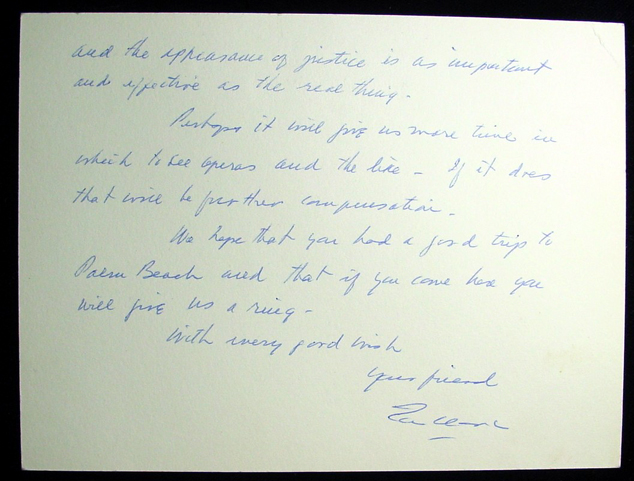 and the appearance of justice is as important
and effective as the real thing -
Perhaps it will give us more time in
which to see operas and the like - If it does
that will be further compensation -
We hope that you had a good trip to
Palm Beach and that if you come here you
will give us a ring -
With every good wish
Your friend